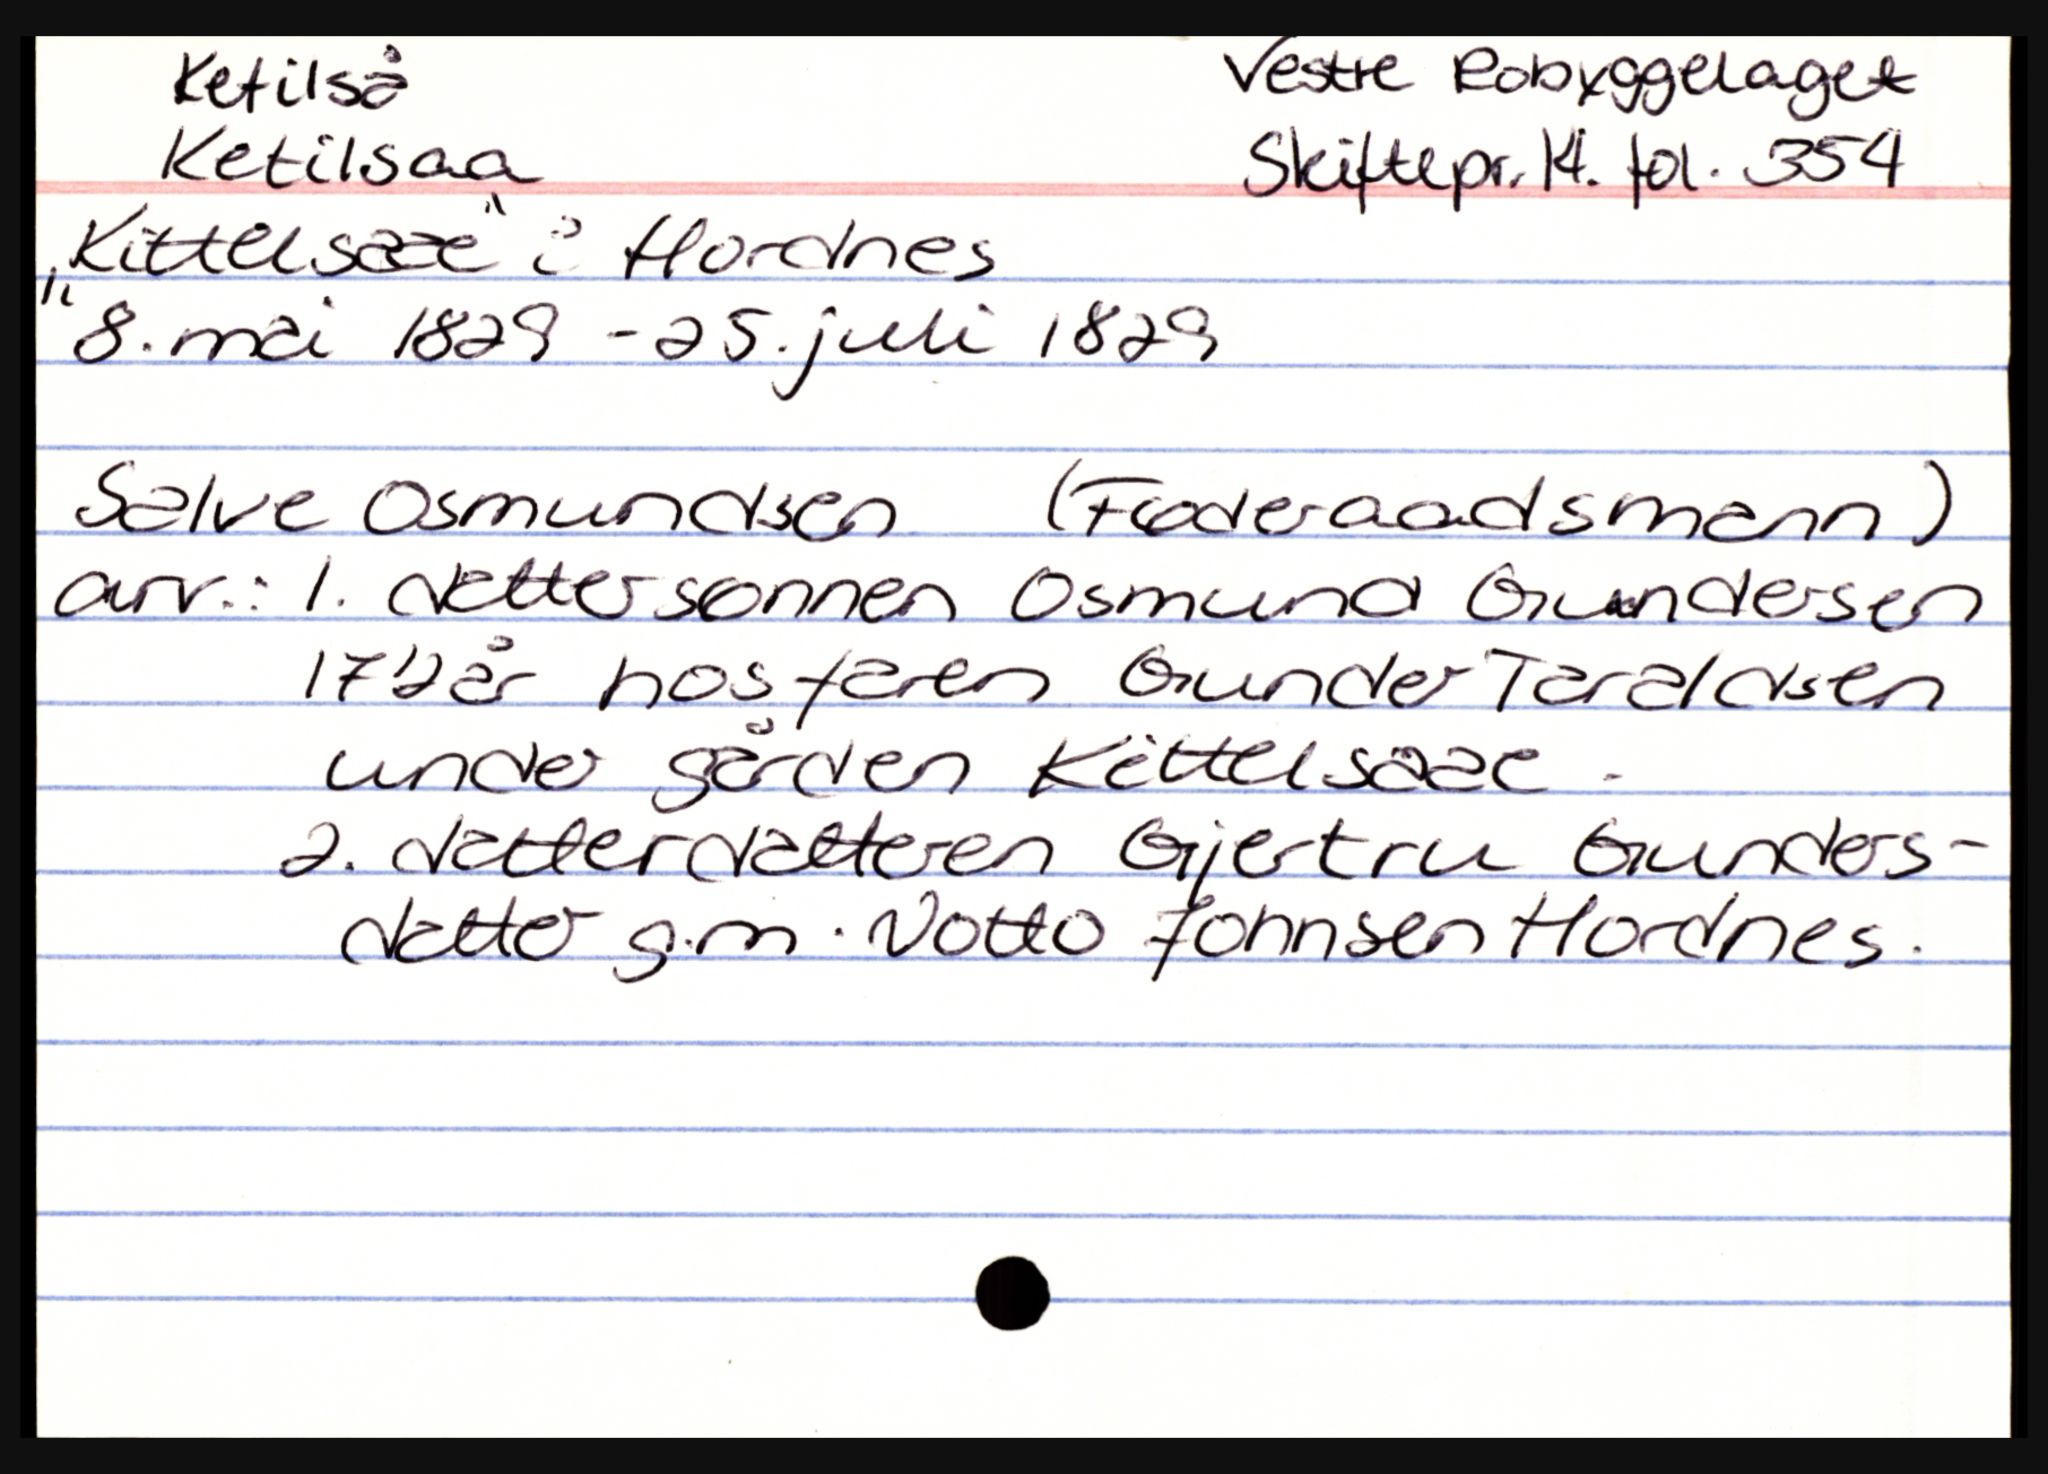 Ketilså
Vestre Robyggelaget
Ketilsaa
Skiftepr. 14. fol. 354
"Kittelsaae" i Hordnes
"8. mai 1829 - 25. juli 1829
Salve Osmundsen (Føderaadsmann)
arv.: 1. dattersønnen Osmund Gundersen
17 1/2 år hos faren Gunder Taraldsen
under gården Kittelsaae.
2. datterdatteren Gjertru Gunders-
datter g.m. Notto Johnsen Hordnes.